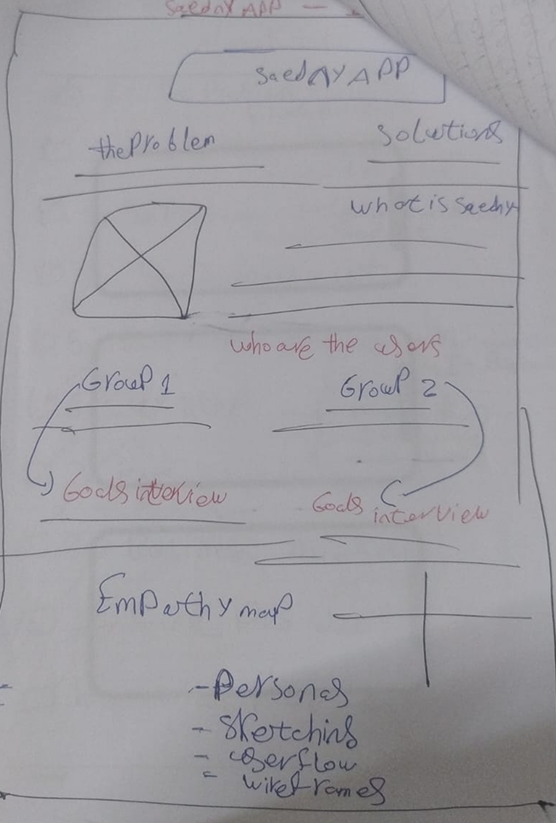 Saedny APP
Saedny APP
the Problem
Solutions
what is Saedny
who are the users
Group 1
Group 2
Goals interview
Goals interview
Empathy map
- Personas
- Sketching
- userflow
= wireframes